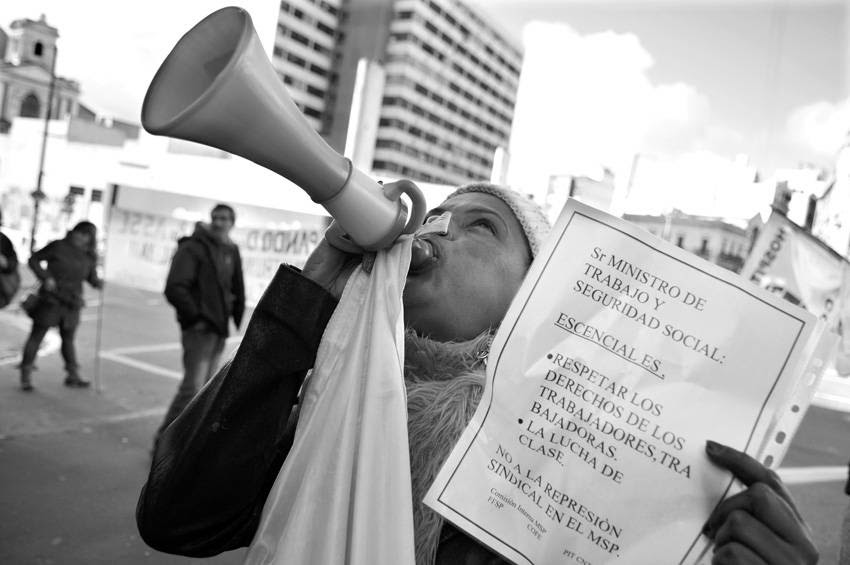 Sr MINISTRO DE
TRABAJO Y
SEGURIDAD SOCIAL:
ESCENCIALES.
•RESPETAR LOS
DERECHOS DE LOS
TRABAJADORES,TRA
BAJADORAS.
• LA LUCHA DE
CLASE.
NO A LA REPRESIÓN
SINDICAL EN EL MSP.
Comisión Interna MSP
FFSP
COFE
PIT CNT
HOSPIT